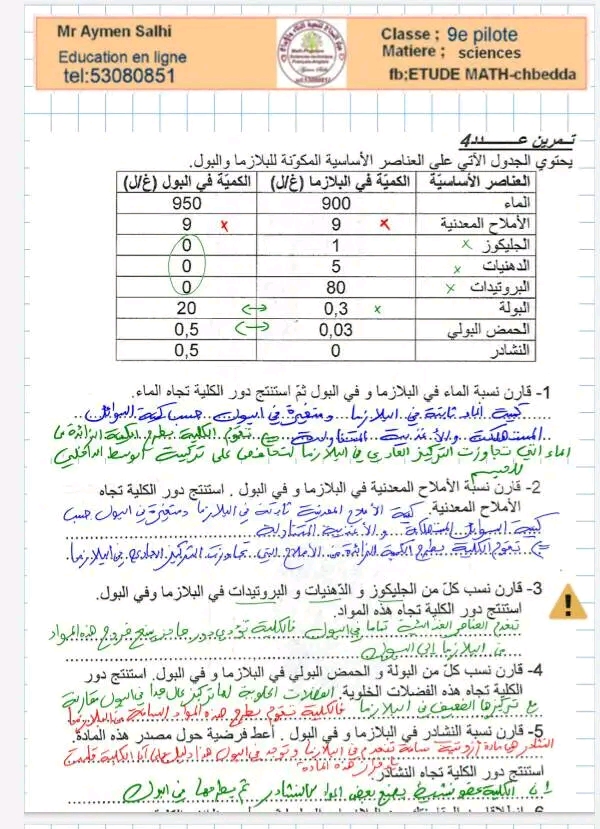 Mr Aymen Salhi
Education en ligne
tel:53080851
Classe ; 9e pilote
Matiere ; sciences
fb;ETUDE MATH-chbedda
تـمرين عــــدد4
يحتوي الجدول الآتي على العناصر الأساسية المكوّنة للبلازما والبول.
العناصر الأساسيّة الكميّة في البلازما (غ/ل) الكميّة في البول (غ/ل)
الماء 900 950
الأملاح المعدنية 9 x 9 x
الجليكوز x 1 0
الدهنيات x 5 0
البروتيدات x 80 0
البولة 0,3 x 20
الحمض البولي 0,03 0,5
النشادر 0 0,5
1- قارن نسبة الماء في البلازما و في البول ثمّ استنتج دور الكلية تجاه الماء.
كمية الماء ثابتة في البلازما ومتغيرة في البول حسب كمية السوائل
المستهلكة والأغذية المتناولة تقوم الكلية بطرح الكمية الزائدة من
الماء التي تجاوزت التركيز العادي في البلازما لتحافظ على تركيبة الوسط الداخلي
للجسم
2- قارن نسبة الأملاح المعدنية في البلازما و في البول . استنتج دور الكلية تجاه
الأملاح المعدنية. كمية الأملاح المعدنية ثابتة في البلازما ومتغيرة في البول حسب
كمية السوائل المستهلكة والأغذية المتناولة
تقوم الكلية بطرح الكمية الزائدة من الأملاح التي تجاوزت التركيز العادي في البلازما
3- قارن نسب كلّ من الجليكوز و الدّهنيات و البروتيدات في البلازما وفي البول.
استنتج دور الكلية تجاه هذه المواد.
تنعدم العناصر الغذائية تماما في البول فالكلية تؤدي دور حاجز يمنع خروج هذه المواد
من البلازما إلى البول
4- قارن نسب كلّ من البولة و الحمض البولي في البلازما و في البول. استنتج دور
الكلية تجاه هذه الفضلات الخلوية. الفضلات الخلوية لها تركيز عال جدا في البول مقارنة
مع تركيزها الضعيف في البلازما فالكلية تقوم بطرح هذه المواد السامة من البلازما
5- قارن نسبة النشادر في البلازما و في البول . أعط فرضية حول مصدر هذه المادة.
النشادر هي مادة أزوتية سامة تنعدم في البلازما وتوجد في البول هذا دليل على أن الكلية قامت
بإفراز هذه المادة
استنتج دور الكلية تجاه النشادر
الكلية عضو نشيط يصنع بعض المواد كالنشادر ثم يطرحها في البول